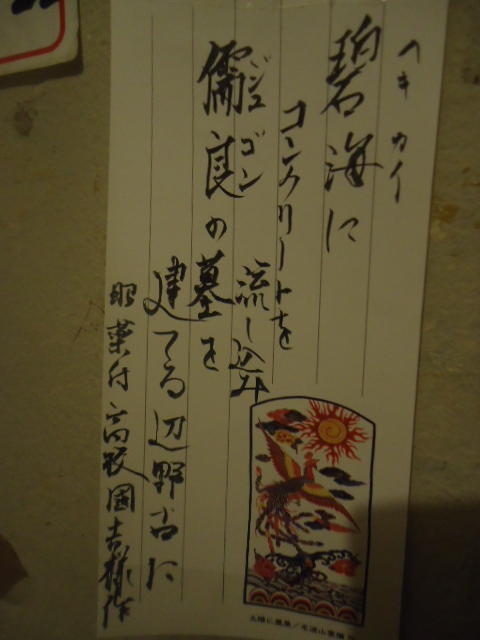 ヘキカイ
碧海に
コンクリートを
流し込み
ジュゴン
儒良の墓を
建てる辺野古に
国吉様作